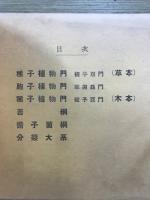 目次
種子植物門 被子亞門 (草本)
胞子植物門 羊齒昌門
種子植物門 被子亞門 (木本)
苔綱
擔子菌綱
分類大系